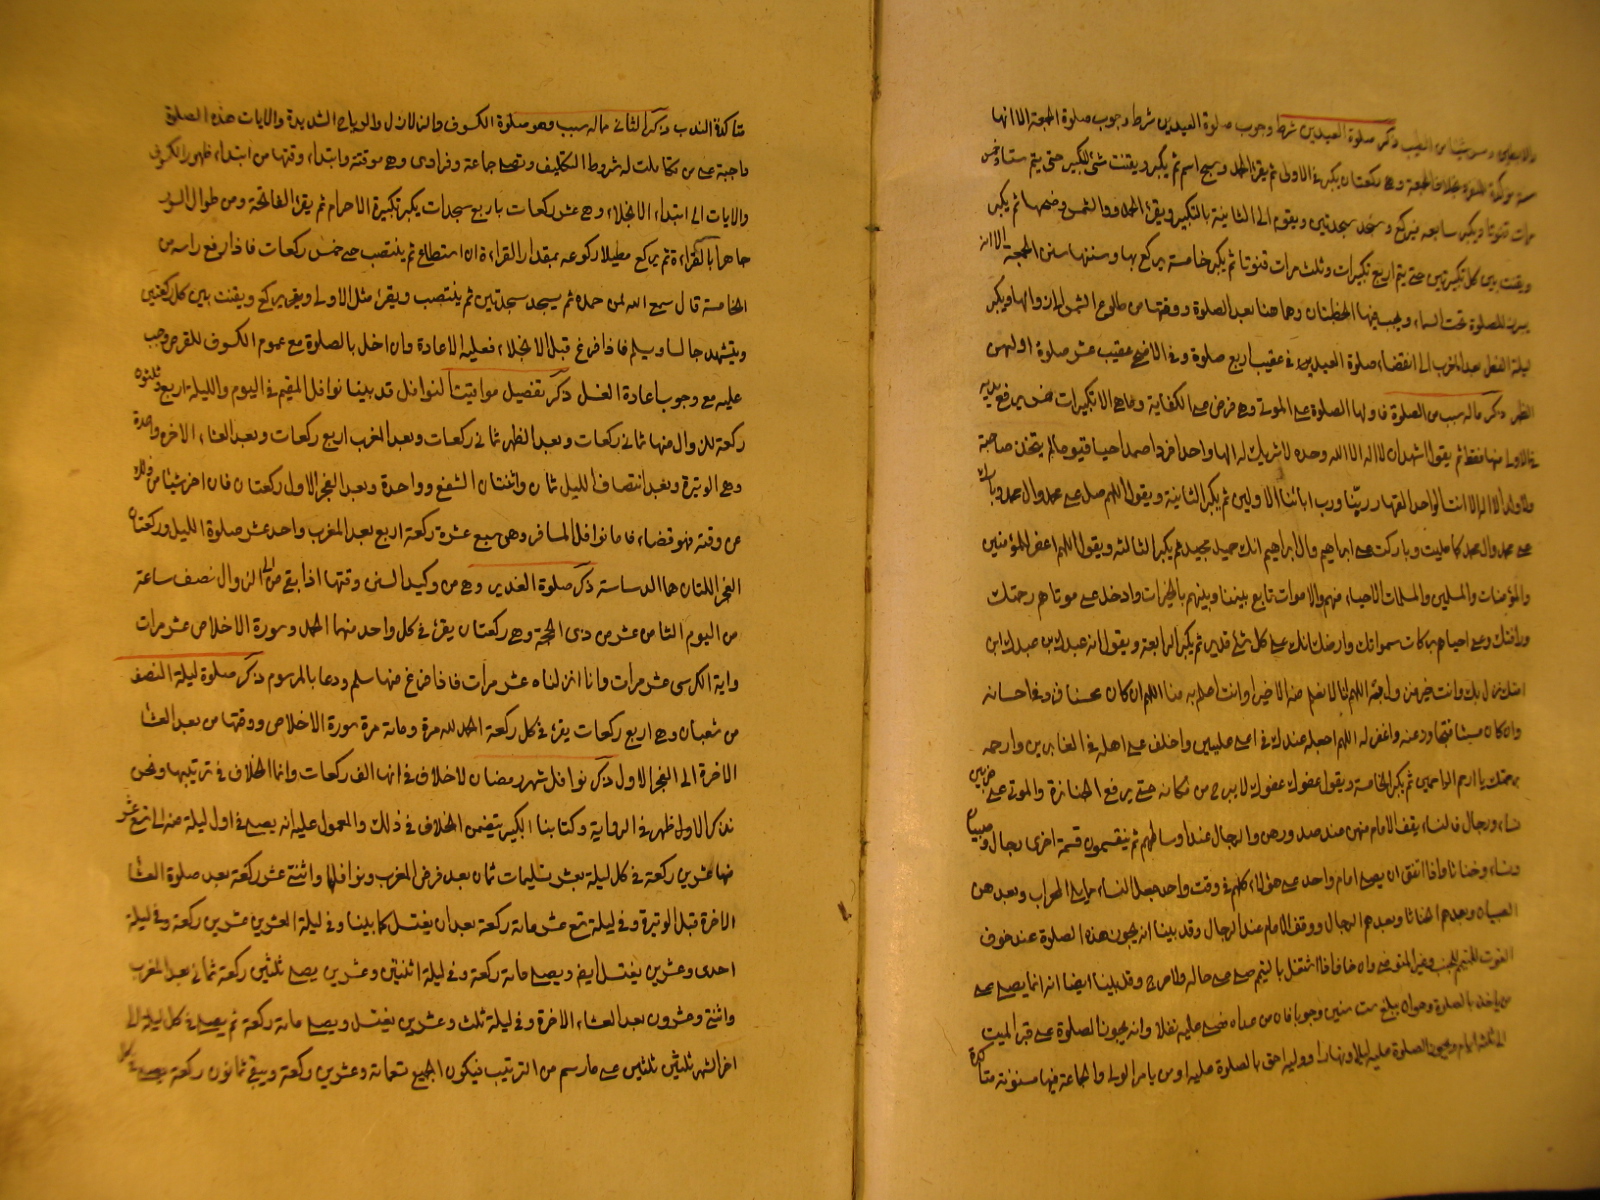 ذكر صلوة العيدين شرط وجوب صلوة العيدين شرط وجوب صلوة الجمعة الا انها
سنة مؤكدة بخلاف الجمعة وهي ركعتان يكبر في الاولى ثم يقرء الحمد وسبح اسم ثم يكبر ويقنت حتى يتم ستا وخمس
مرات قنوتا ويكبر سابعه فيركع وسجد سجدتين ويقوم الى الثانية بالتكبير ويقرء الحمد والشمس وضحها ثم يكبر
ويقنت بين كل تكبيرتين حتى يتم اربع تكبيرات وثلث مرات قنوتا ثم يكبر خامسة يركع بها وسننها سنن الجمعة الا انه
يبرز للصلوة تحت السماء ويجب فيها الخطبتان وهما هنا بعد الصلوة ووقتها من طلوع الشمس الى زوالها ويكبر
ليلة الفطر بعد المغرب الى انقضاء صلوة العيدين في عقيب اربع صلوة وفي الاضحى عقيب عشر صلوة اولهن
الظهر ذكر ماله سبب من الصلوة فاولها الصلوة على الموتى وهي فرض على الكفاية وماهي الا تكبيرات خمس يرفع يديه
في الاولى منها فقط ثم يقول اشهد ان لا اله الا الله وحده لا شريك له الها واحدا فردا صمدا حيا قيوما لم يتخذ صاحبة
ولا ولدا لا اله الا انت الواحد القهار ربنا ورب ابائنا الاولين ثم يكبر الثانية ويقول اللهم صل على محمد وال محمد وبارك
على محمد وال محمد كما صليت وباركت على ابراهيم وال ابراهيم انك حميد مجيد ثم يكبر الثالثة ويقول اللهم اغفر للمؤمنين
والمؤمنات والمسلمين والمسلمات الاحياء منهم والاموات تابع بيننا وبينهم بالخيرات وادخل على موتاهم رحمتك
ورافتك وعلى احيائهم بركات سمواتك وارضك انك على كل شئ قدير ثم يكبر الرابعة ويقول انه عبدك بن عبدك ابن
امتك نزل بك وانت خير منزول به اللهم انا لا نعلم منه الا خيرا وانت اعلم به منا اللهم ان كان محسنا فزد في احسانه
وان كان مسيئا فتجاوز عنه واغفر له اللهم اجعله عندك في اعلى عليين واخلف على اهله في الغابرين وارحمه
برحمتك يا ارحم الراحمين ثم يكبر الخامسة ويقول عفوك عفوك لا يبرح من مكانه حتى يرفع الجنازة والموتى على ضربين
نساء ورجال فالنساء يقف الامام منهن عند صدورهن والرجال عند اوساطهم ثم ينقسمون قسمة اخرى رجال وصبيان
ونساء وخناثا فاذا اتفق ان يصلي امام واحد على هؤلاء كلهم في وقت واحد جعل النساء مما يلي المحراب وبعدهن
الصبيان وبعدهم الخناثا وبعدهم الرجال ووقف الامام عند الرجال وقد بينا انه يجوز هذه الصلوة عند خوف
الفوت للمتيمم للجنب وغير المتوضي وقد بينا ايضا انه انما يصلي على
بالصلوة وهو ان يبلغ ست سنين وجوبا فان من عداه صلى عليه نفلا وانه يجوز الصلوة على قبر الميت
الى ثلثة ايام ويجوز الصلوة عليه ليلا ونهارا ووليه احق بالصلوة عليه او من يامره الولي والجماعة فيها مسنونة متاكدة
متاكدة الندب ذكر الثاني ماله سبب وهو صلوة الكسوف والزلازل والرياح الشديدة والايات هذه الصلوة
واجبة على من تكاملت له شروط التكليف وتصلى جماعة وفرادى وهي موقتة وابتداء وقتها من ابتداء ظهور الكسوف
والايات الى ابتداء الانجلاء وهي عشر ركعات باربع سجدات يكبر تكبيرة الاحرام ثم يقرء الفاتحة ومن طوال السور
جاهرا بالقراءة ثم يركع مطيلا ركوعه بمقدار القراءة ان استطاع ثم ينتصب حتى خمس ركعات فاذا رفع راسه من
الخامسة قال سمع الله لمن حمده ثم يسجد سجدتين ثم ينتصب ويقرء مثل الاولى وبقى يركع ويقنت بين كل ركعتين
ويتشهد جالسا ويسلم فاذا فرغ قبل الانجلاء فعليه الاعادة وان اخل بالصلوة مع عموم الكسوف للقرص وجب
عليه مع وجوب اعادة الغسل ذكر تفصيل مواقيت النوافل قد بينا نوافل المقيم في اليوم والليلة اربع وثلثون
ركعة للزوال منها ثماني ركعات وبعد الظهر ثماني ركعات وبعد المغرب اربع ركعات وبعد العشاء الاخرة واحدة
وهي الوتيرة وبعد انتصاف الليل ثمان واثنتان الشفع وواحدة وبعد الفجر الاول ركعتان فان اخر شيئا من ذلك
عن وقته فهو قضاء فاما نوافل المسافر وهي سبع عشرة ركعة اربع بعد المغرب واحد عشر صلوة الليل وركعتان
الفجر اللتان هما الدساسة ذكر صلوة الغدير وهي من وكيد السنن وقتها اذا بقى من الى الزوال نصف ساعة
من اليوم الثامن عشر من ذي الحجة وهي ركعتان يقرء في كل واحد منهما الحمد وسورة الاخلاص عشر مرات
واية الكرسي عشر مرات وانا انزلناه عشر مرات فاذا فرغ منها سلم ودعا بالمرسوم ذكر صلوة ليلة النصف
من شعبان وهي اربع ركعات يقرء في كل ركعة الحمد لله مرة ومائة مرة سورة الاخلاص ووقتها من بعد العشا
الاخرة الى الفجر الاول ذكر نوافل شهر رمضان لا خلاف في انها الف ركعات وانما الخلاف في ترتيبها ونحن
نذكر الاول ظهر في الرواية وكتابنا الكبير يتضمن الخلاف في ذلك والمعمول عليه انه يصلي في اول ليلة منه الى تسع عشر
منها عشرين ركعة في كل ليلة بعشر تسليمات ثمان بعد فرض المغرب ونوافلها واثنتى عشر ركعة بعد صلوة العشا
الاخرة قبل الوتيرة وفي ليلة تسع عشر مائة ركعة بعد ان يغتسل كما بينا وفي ليلة العشرين عشرين ركعة وفي ليلة
احدى وعشرين يغتسل ايضا ويصلي مائة ركعة وفي ليلة اثنتين وعشرين يصلي ثلثين ركعة ثماني بعد المغرب
واثنتى وعشرون بعد العشاء الاخرة وفي ليلة ثلث وعشرين يغتسل ويصلي مائة ركعة ثم يصلي في كل ليلة الى
اخر الشهر ثلثين ثلثين على ما رسم من الترتيب فيكون الجميع تسعمائة وعشرين ركعة ويبقى ثمانون ركعة يصلي في كل